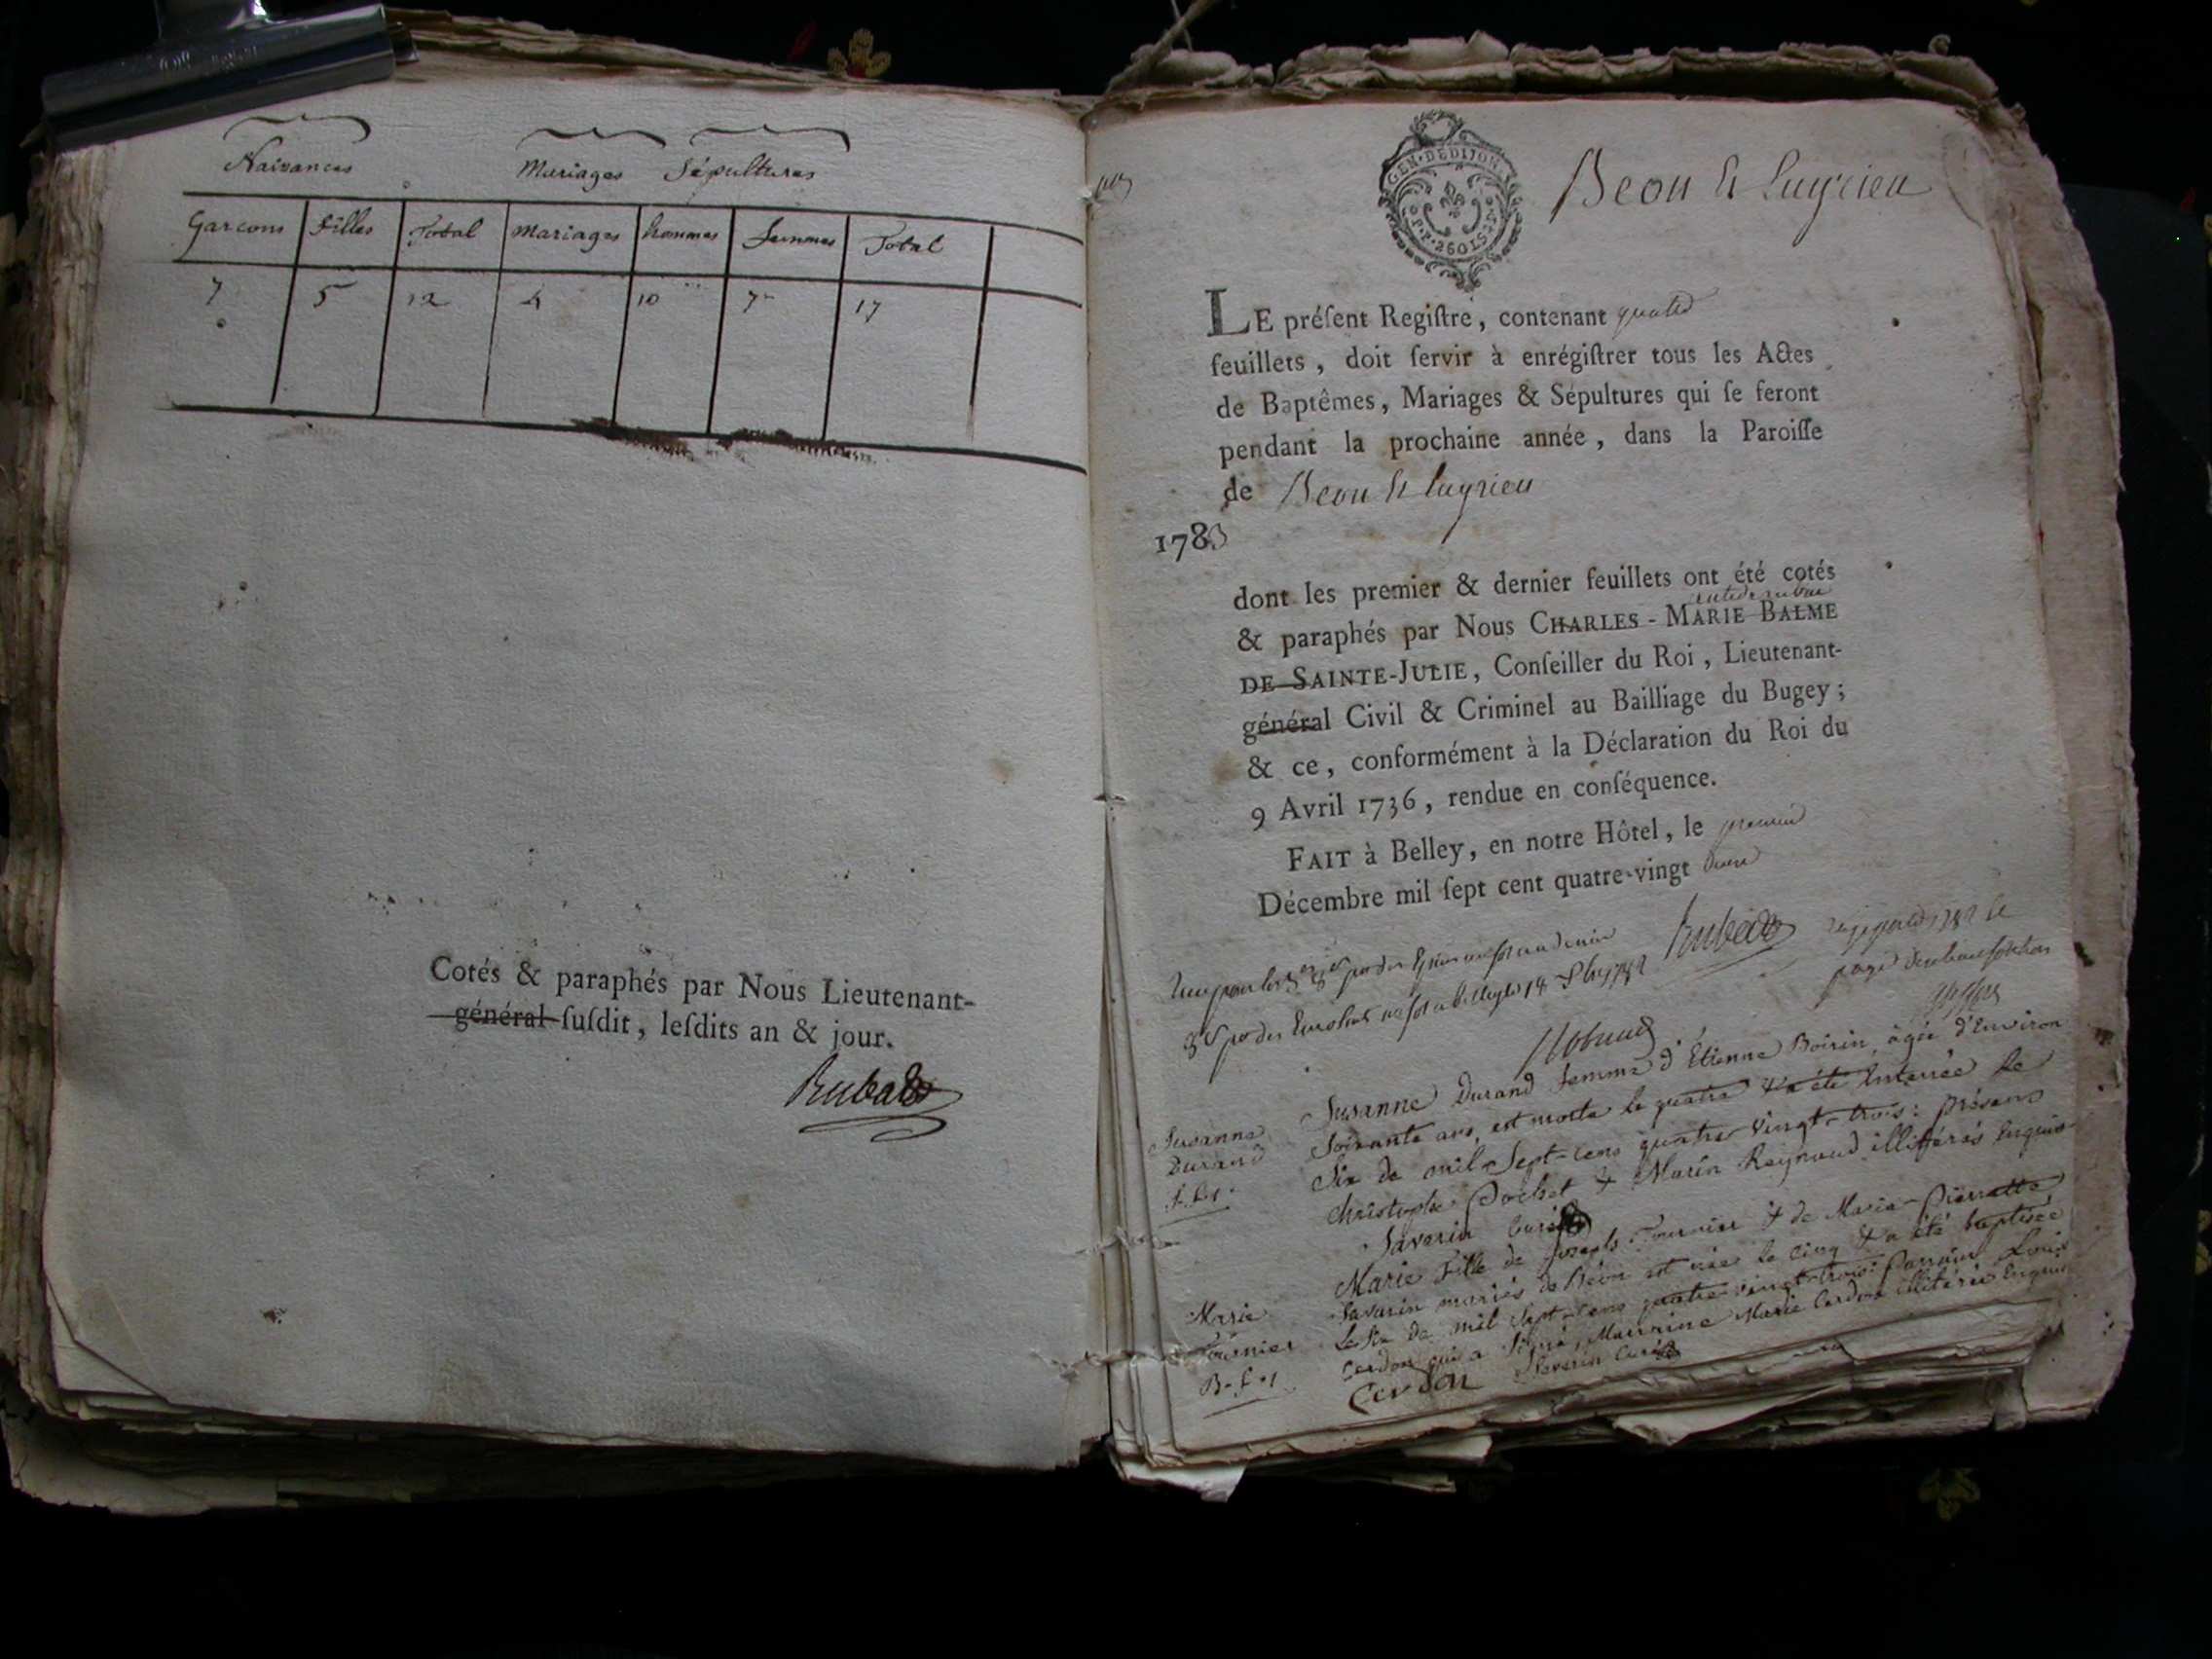 Naissances Mariages Sépultures
Garcons filles Total Mariages hommes femmes Total
7 5 12 4 10 7 17
Cotés & paraphés par Nous Lieutenant-
général ſuſdit, leſdits an & jour.
Rubat
GEN. DE DIJON
Beon Et Luyrieu
LE préſent Regiſtre, contenant quatre
feuillets, doit ſervir à enrégiſtrer tous les Actes
de Baptêmes, Mariages & Sépultures qui ſe feront
pendant la prochaine année, dans la Paroiſſe
de Beon Et Luyrieu
1783
dont les premier & dernier feuillets ont été cotés
& paraphés par Nous CHARLES-MARIE BALME
DE SAINTE-JULIE, Conſeiller du Roi, Lieutenant-
général Civil & Criminel au Bailliage du Bugey;
& ce, conformément à la Déclaration du Roi du
9 Avril 1736, rendue en conſéquence.
FAIT à Belley, en notre Hôtel, le premier
Décembre mil ſept cent quatre-vingt deux
Rubat
Susanne Durand femme d'Etienne Boirin, agée d'Environ
Soixante ans, est morte le quatre & a été Enterrée le
Six de mil Sept-cens quatre-vingt-trois: présens
Christophe Pochet & Marin Reynaud illitérés Enquis
Savarin Curé
Susanne
Durand
Marie fille de Joseph Fournier & de Marie-Pierrette
Savarin mariés de Béon est née le cinq & a été baptisée
le Six de mil Sept-cens quatre-vingt-trois: Parrain Louis
Cerdon qui a Signé, Marraine Marie Cerdon illitérée Enquise
Cerdon Savarin Curé
Marie
Fournier
B. f. 1